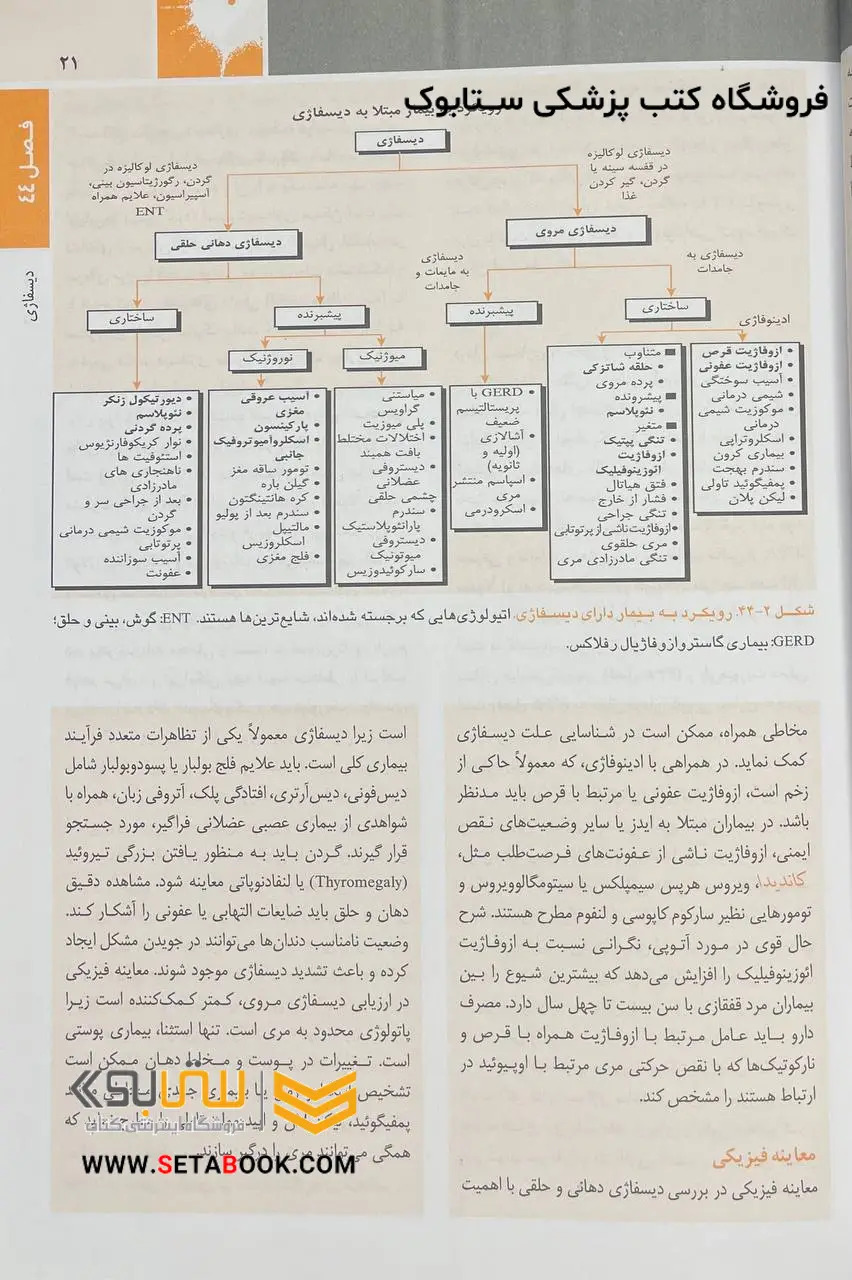 ۲۱
فروشگاه کتب پزشکی ستابوک
بیمار مبتلا به دیسفاژی
فصل ٤٤
دیسفاژی
دیسفاژی
دیسفاژی لوکالیزه
در قفسه سینه یا
گردن، گیر کردن
غذا
دیسفاژی لوکالیزه در
گردن، رگورژیتاسیون بینی،
آسپیراسیون، علایم همراه
ENT
دیسفاژی مروی
دیسفاژی دهانی حلقی
دیسفاژی به
جامدات
دیسفاژی
به مایعات و
جامدات
ساختاری
پیشبرنده
پیشبرنده
ساختاری
ادینوفاژی
میوژنیک
نوروژنیک
• ازوفاژیت قرص
• ازوفاژیت عفونی
• آسیب سوختگی
• شیمی درمانی
• موکوزیت شیمی
درمانی
• اسکلروتراپی
• بیماری کرون
• سندرم بهجت
• پمفیگوئید تاولی
• لیکن پلان
■ متناوب
• حلقه شاتزکی
• پرده مروی
■ پیشرونده
• نئوپلاسم
■ متغیر
• تنگی پپتیک
• ازوفاژیت
ائوزینوفیلیک
• فتق هیاتال
• فشار از خارج
• تنگی جراحی
• ازوفاژیت ناشی از پرتوتابی
• مری حلقوی
• تنگی مادرزادی مری
• GERD با
پریستالتیسم
ضعیف
• آشالازی
(اولیه و
ثانویه)
• اسپاسم منتشر
مری
• اسکلرودرمی
• میاستنی
گراویس
• پلی میوزیت
• اختلالات مختلط
بافت همبند
• دیستروفی
عضلانی
چشمی حلقی
• سندرم
پارانئوپلاستیک
• دیستروفی
میوتونیک
• سارکوئیدوزیس
• آسیب عروقی
مغزی
• پارکینسون
• اسکلروآمیوتروفیک
جانبی
• تومور ساقه مغز
• گیلن باره
• کره هانتینگتون
• سندرم بعد از پولیو
• مالتیپل
اسکلروزیس
• فلج مغزی
• دیورتیکول زنکر
• نئوپلاسم
• پرده گردنی
• نوار کریکوفارنژیوس
• استئوفیت ها
• ناهنجاری های
مادرزادی
• بعد از جراحی سر و
گردن
• موکوزیت شیمی درمانی
• پرتوتابی
• آسیب سوزاننده
• عفونت
شکل ۲-۴۴. رویکرد به بیمار دارای دیسفاژی. اتیولوژی‌هایی که برجسته شده‌اند، شایع‌ترین‌ها هستند. ENT: گوش، بینی و حلق؛
GERD: بیماری گاسترو ازوفاژیال رفلاکس.
مخاطی همراه، ممکن است در شناسایی علت دیسفاژی
کمک نماید. در همراهی با ادینوفاژی، که معمولاً حاکی از
زخم است، ازوفاژیت عفونی یا مرتبط با قرص باید مدنظر
باشد. در بیماران مبتلا به ایدز یا سایر وضعیت‌های نقص
ایمنی، ازوفاژیت ناشی از عفونت‌های فرصت‌طلب مثل،
کاندیدا، ویروس هرپس سیمپلکس یا سیتومگالوویروس و
تومورهایی نظیر سارکوم کاپوسی و لنفوم مطرح هستند. شرح
حال قوی در مورد آتوپی، نگرانی نسبت به ازوفاژیت
ائوزینوفیلیک را افزایش می‌دهد که بیشترین شیوع را بین
بیماران مرد قفقازی با سن بیست تا چهل سال دارد. مصرف
دارو باید عامل مرتبط با ازوفاژیت همراه با قرص و
نارکوتیک‌ها که با نقص حرکتی مری مرتبط با اوپیوئید در
ارتباط هستند را مشخص کند.
معاینه فیزیکی
معاینه فیزیکی در بررسی دیسفاژی دهانی و حلقی با اهمیت
است زیرا دیسفاژی معمولاً یکی از تظاهرات متعدد فرآیند
بیماری کلی است. باید علایم فلج بولبار یا پسودوبولبار شامل
دیس‌فونی، دیس‌آرتری، افتادگی پلک، آتروفی زبان، همراه با
شواهدی از بیماری عصبی عضلانی فراگیر، مورد جستجو
قرار گیرند. گردن باید به منظور یافتن بزرگی تیروئید
(Thyromegaly) یا لنفادنوپاتی معاینه شود. مشاهده دقیق
دهان و حلق باید ضایعات التهابی یا عفونی را آشکار کند.
وضعیت نامناسب دندان‌ها می‌توانند در جویدن مشکل ایجاد
کرده و باعث تشدید دیسفاژی موجود شوند. معاینه فیزیکی
در ارزیابی دیسفاژی مروی، کمتر کمک‌کننده است زیرا
پاتولوژی محدود به مری است. تنها استثنا، بیماری پوستی
است. تغییرات در پوست و مخاط دهان ممکن است
تشخیص
پمفیگوئید، که
همگی می‌توانند مری را درگیر سازند.
ستابوک
فروشگاه اینترنتی کتاب
WWW.SETABOOK.COM